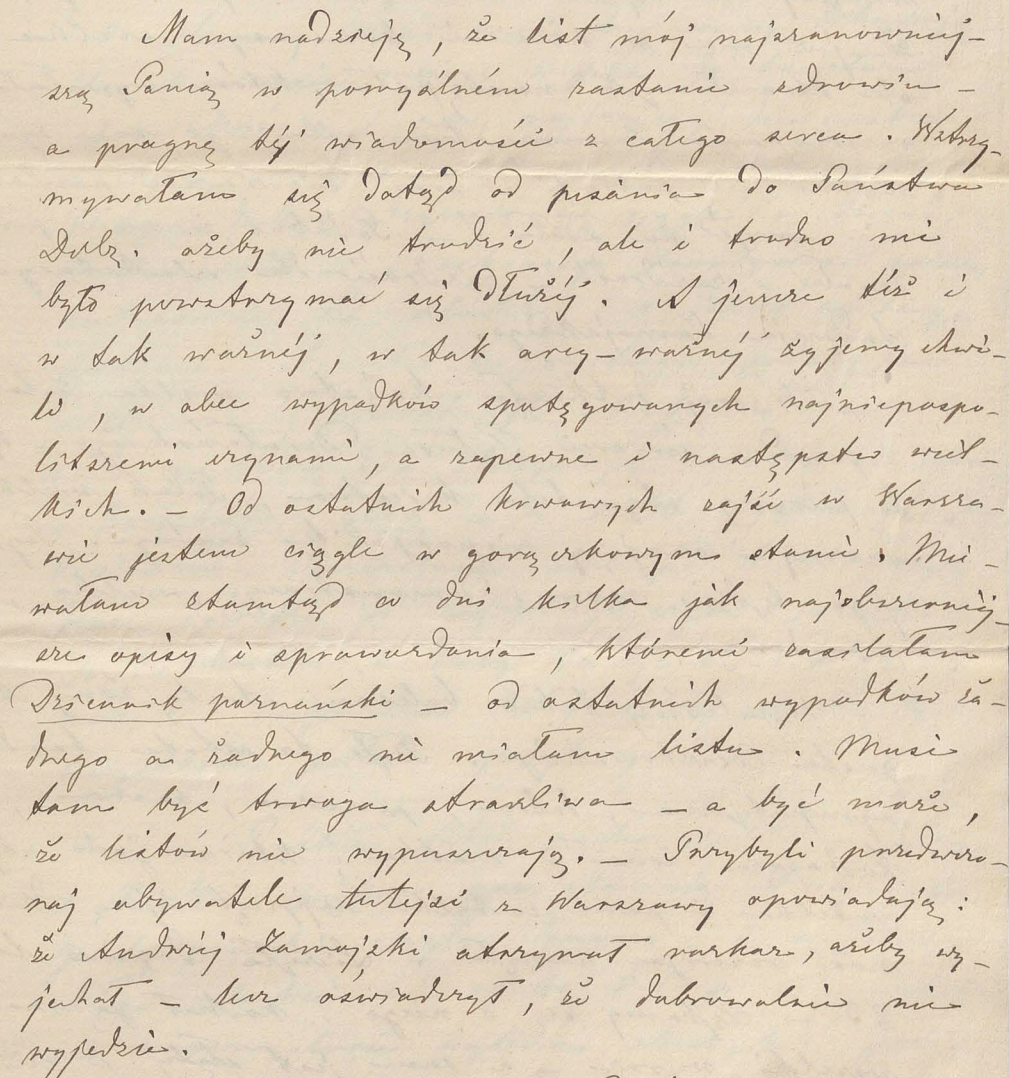 Mam nadzieję, że list mój najszanowniej-
szą Panią w pomyślném zastanie zdrowiu –
a pragnę téj wiadomości z całego serca. Wstrzy-
mywałam się dotąd od pisania do Państwa
Dobr. ażeby nie trudzić, ale i trudno mi
było powstrzymać się dłużéj. A jeszcze téż i
w tak ważnéj, w tak arcy-ważnéj żyjemy chwi-
li, w obec wypadków spotęgowanych najniepospo-
litszemi czynami, a zapewne i następstw wiel-
kich. – Od ostatnich krwawych zajść w Warsza-
wie jestem ciągle w gorączkowym stanie. Mie-
wałam ztamtąd co dni kilka jak najobszerniej-
sze opisy i sprawozdania, któremi zasilałam
Dziennik poznański – od ostatnich wypadków ża-
dnego a żadnego nie miałam listu. Musi
tam być trwoga straszliwa – a być może,
że listów nie wypuszczają. – Przybyli przedwczo-
raj obywatele tutejsi z Warszawy opowiadają:
że Andrzéj Zamojski otrzymał rozkaz, ażeby wy-
jechał – lecz oświadczył, że dobrowolnie nie
wyjedzie.